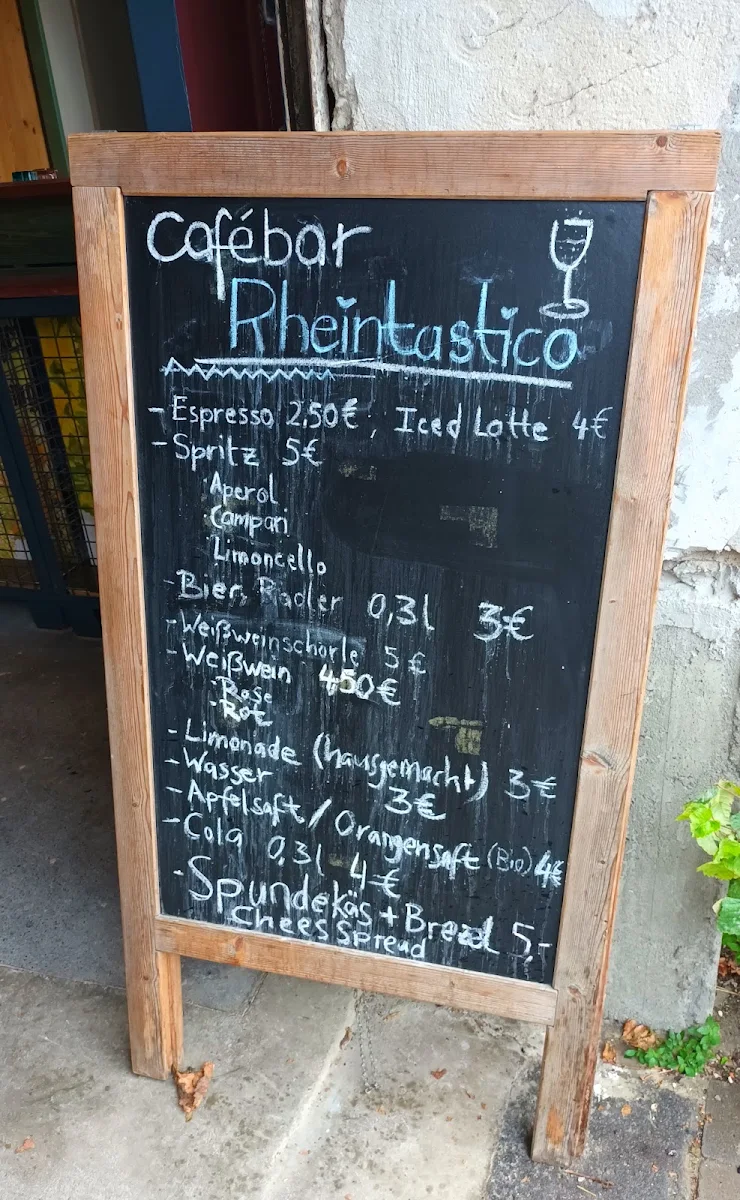 Cafébar
Rheintastico
- Espresso 2,50€ ; Iced Latte 4€
- Spritz 5€
Aperol
Campari
Limoncello
- Bier, Radler 0,3l 3€
- Weißweinschorle 5€
- Weißwein 4,50€
- Rose
- Rot
- Limonade (hausgemacht) 3€
- Wasser 3€
- Apfelsaft / Orangensaft (Bio) 4€
- Cola 0,3l 4€
- Spundekäs + Brezel 5,-
Chees Spread